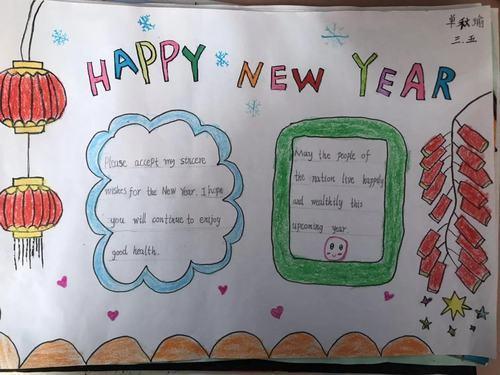 HAPPY NEW YEAR
三.五
Please accept my sincere
wishes for the New Year. I hope
you will continue to enjoy
good health.
May the people of
the nation live happily
and wealthily this
upcoming year.